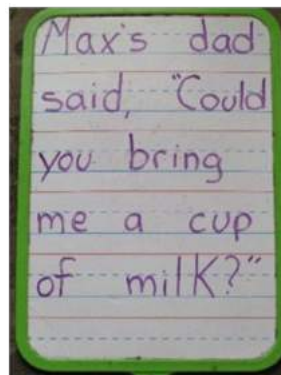 Max's dad
said, "Could
you bring
me a cup
of milK?"